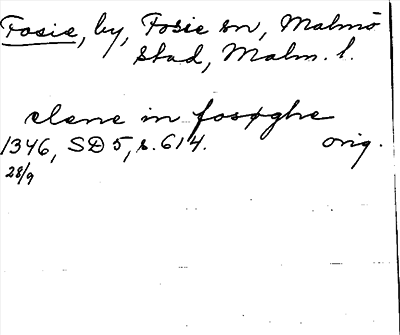 Fosie, by, Fosie sn, Malmö
stad, Malm. l.
elene in fosøghe
1346, SD 5, s. 614. orig.
28/9